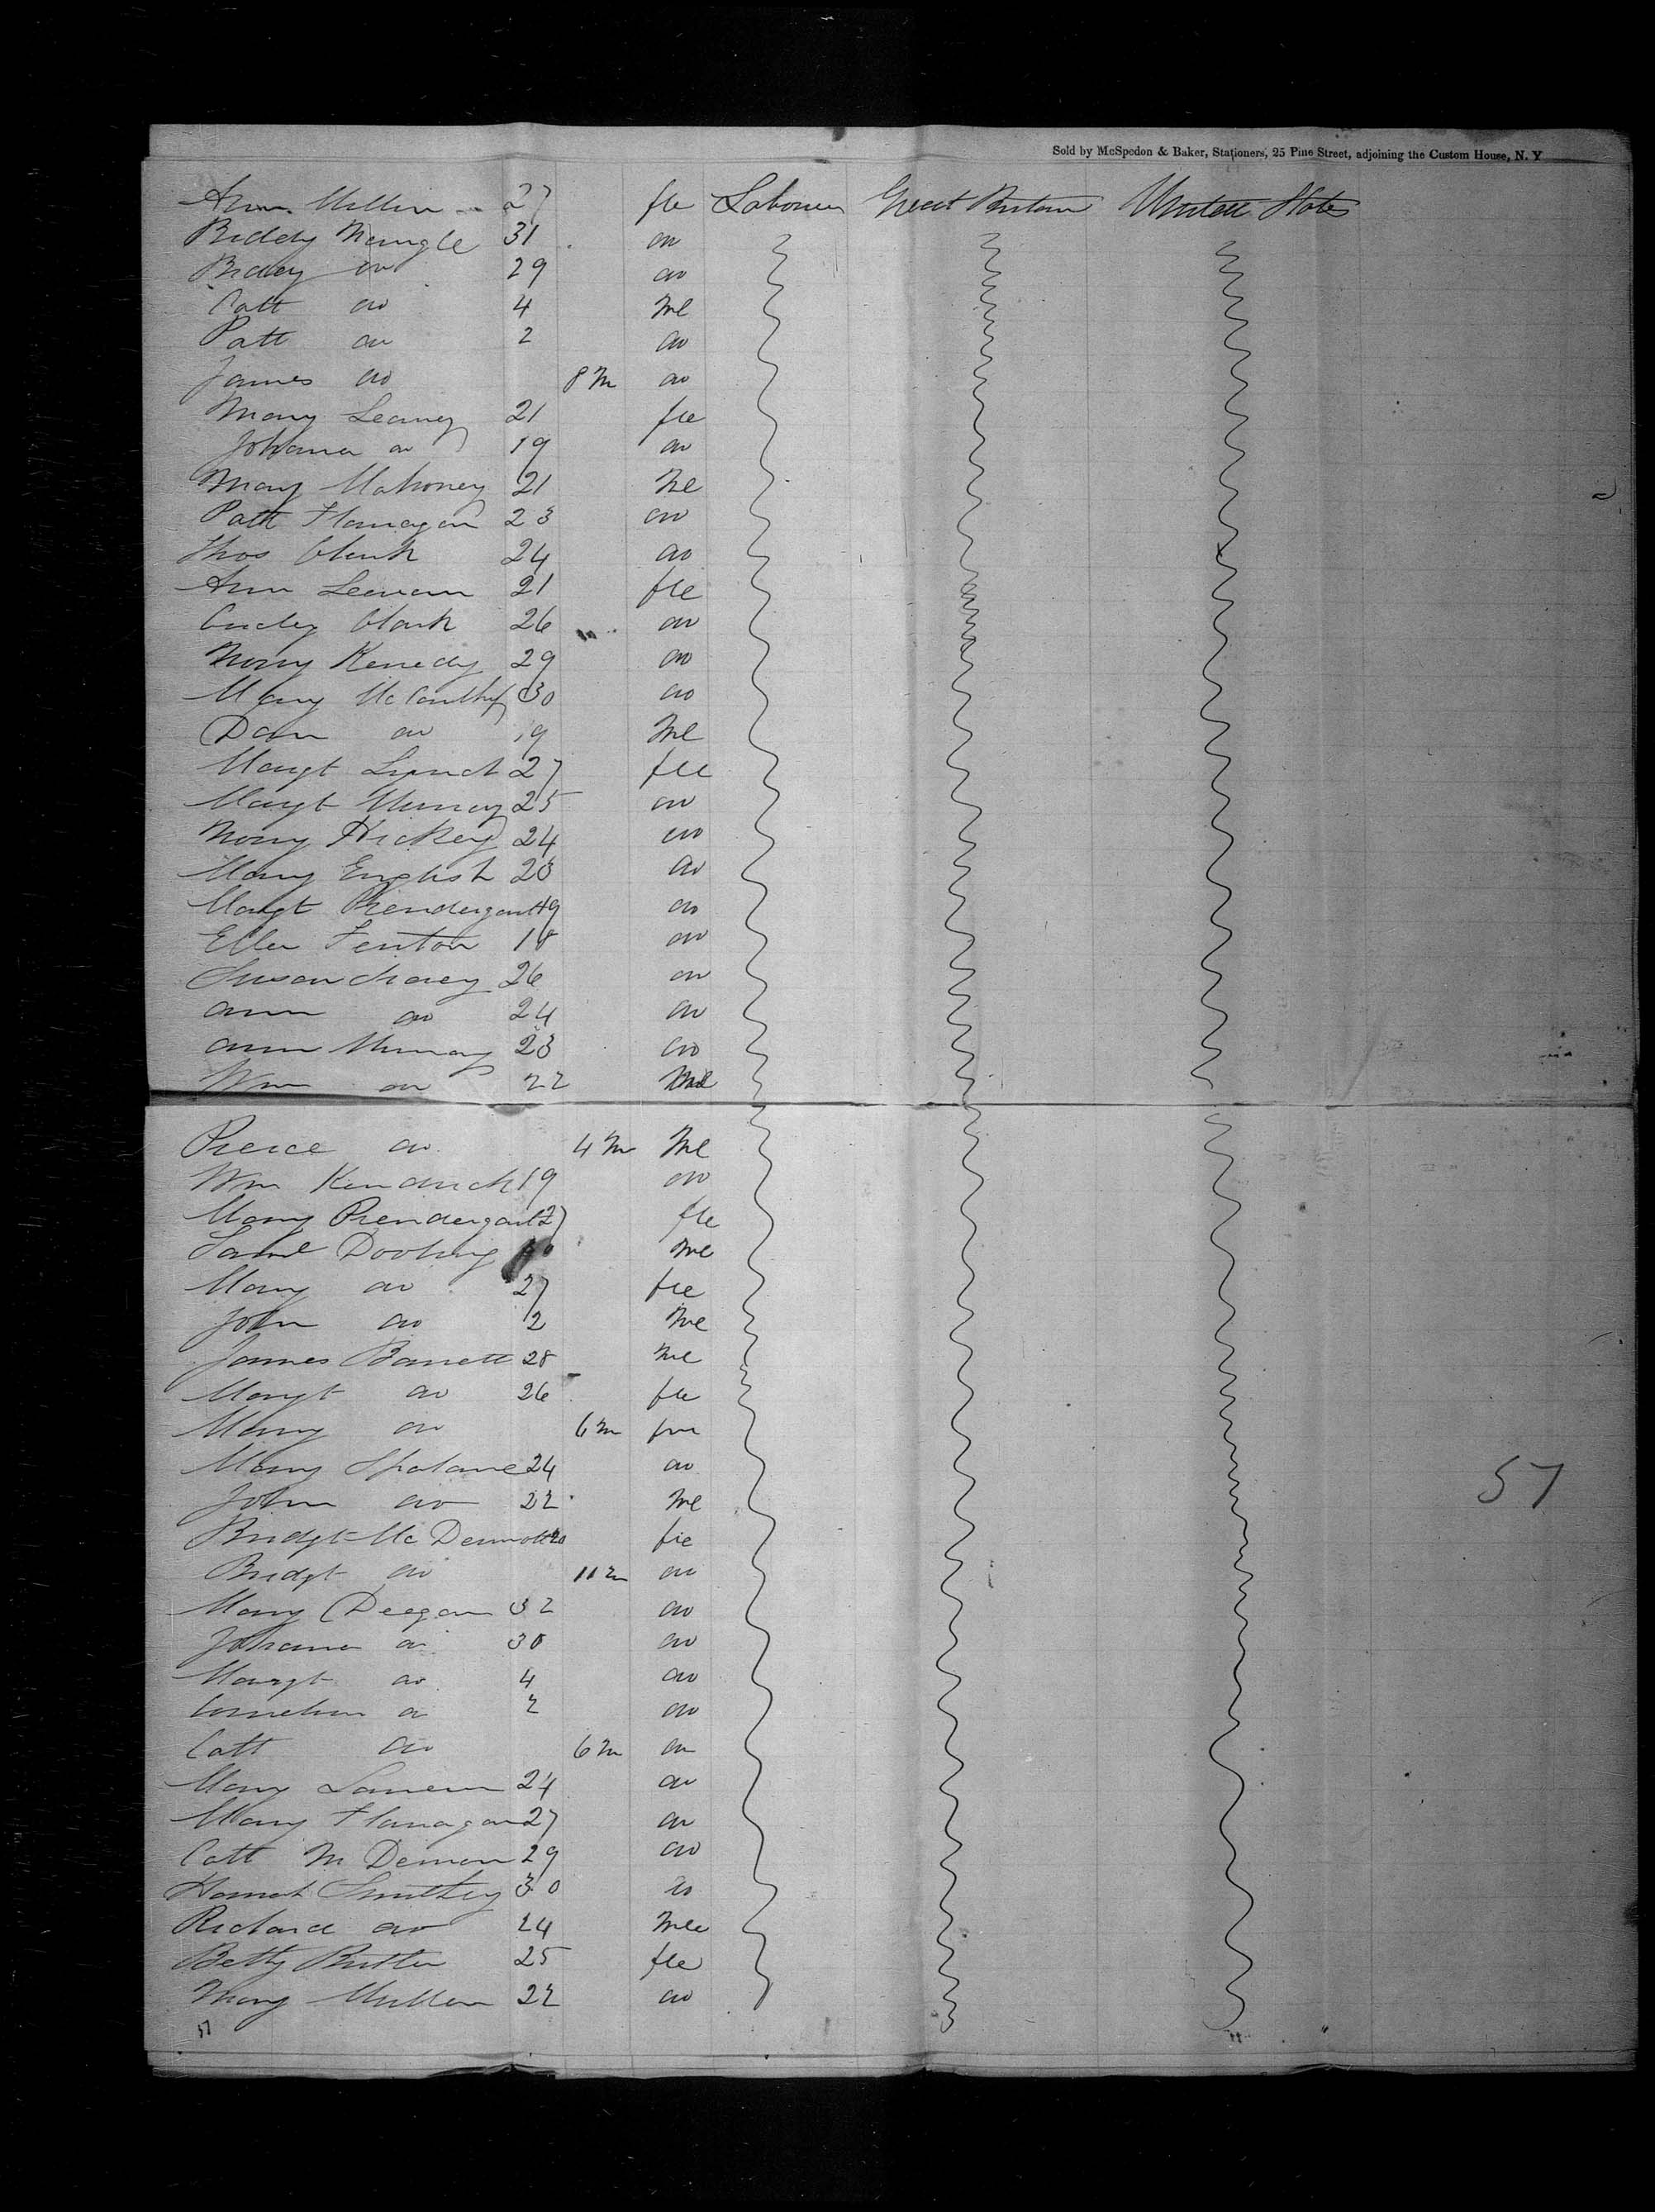 Sold by McSpedon & Baker, Stationers, 25 Pine Street, adjoining the Custom House, N. Y
Ann Mullin 27 fle Labourer Great Britain United States
Biddy Nangle 31 do
Bridey do 29 do
Catt do 4 Me
Patt do 2 do
James do 8 m do
Mary Leamy 21 fle
Johana do 19 do
Mary Mahoney 21 Me
Patt Flanagan 23 do
Thos Clark 24 do
Ann 21 fle
Clark 26 do
Mary Kenedy 29 do
Mary McCarthy 30 do
Dan do 19 Me
Margt Lynch 27 fle
Margt Murray 25 do
Mary Hickey 24 do
Mary English 23 do
Margt Prendergast 19 do
Ellen Fenton 18 do
Susan 26 do
Ann do 24 do
Ann Murray 23 do
Wm do 22 Me
Pierce do 4 m Me
Wm Kendrick 19 do
Mary Prendergast 27 fle
Saml Dooling Me
Mary do 27 fle
John do 2 Me
James Barrett 28 Me
Margt do 26 fle
Mary do 6 m fle
Mary Spalane 24 do
John do 22 Me
Bridgt McDermott 20 fle
Bridgt do 11 m do
Mary Deegan 32 do
Johana do 30 do
Margt do 4 do
do 2 do
Catt do 6 m do
Mary 24 do
Mary Flanagan 27 do
Catt 29 do
Hanah Smithey 30 do
Richard do 24 Me
Betty Butler 25 fle
Mary Mullen 22 do
57
57